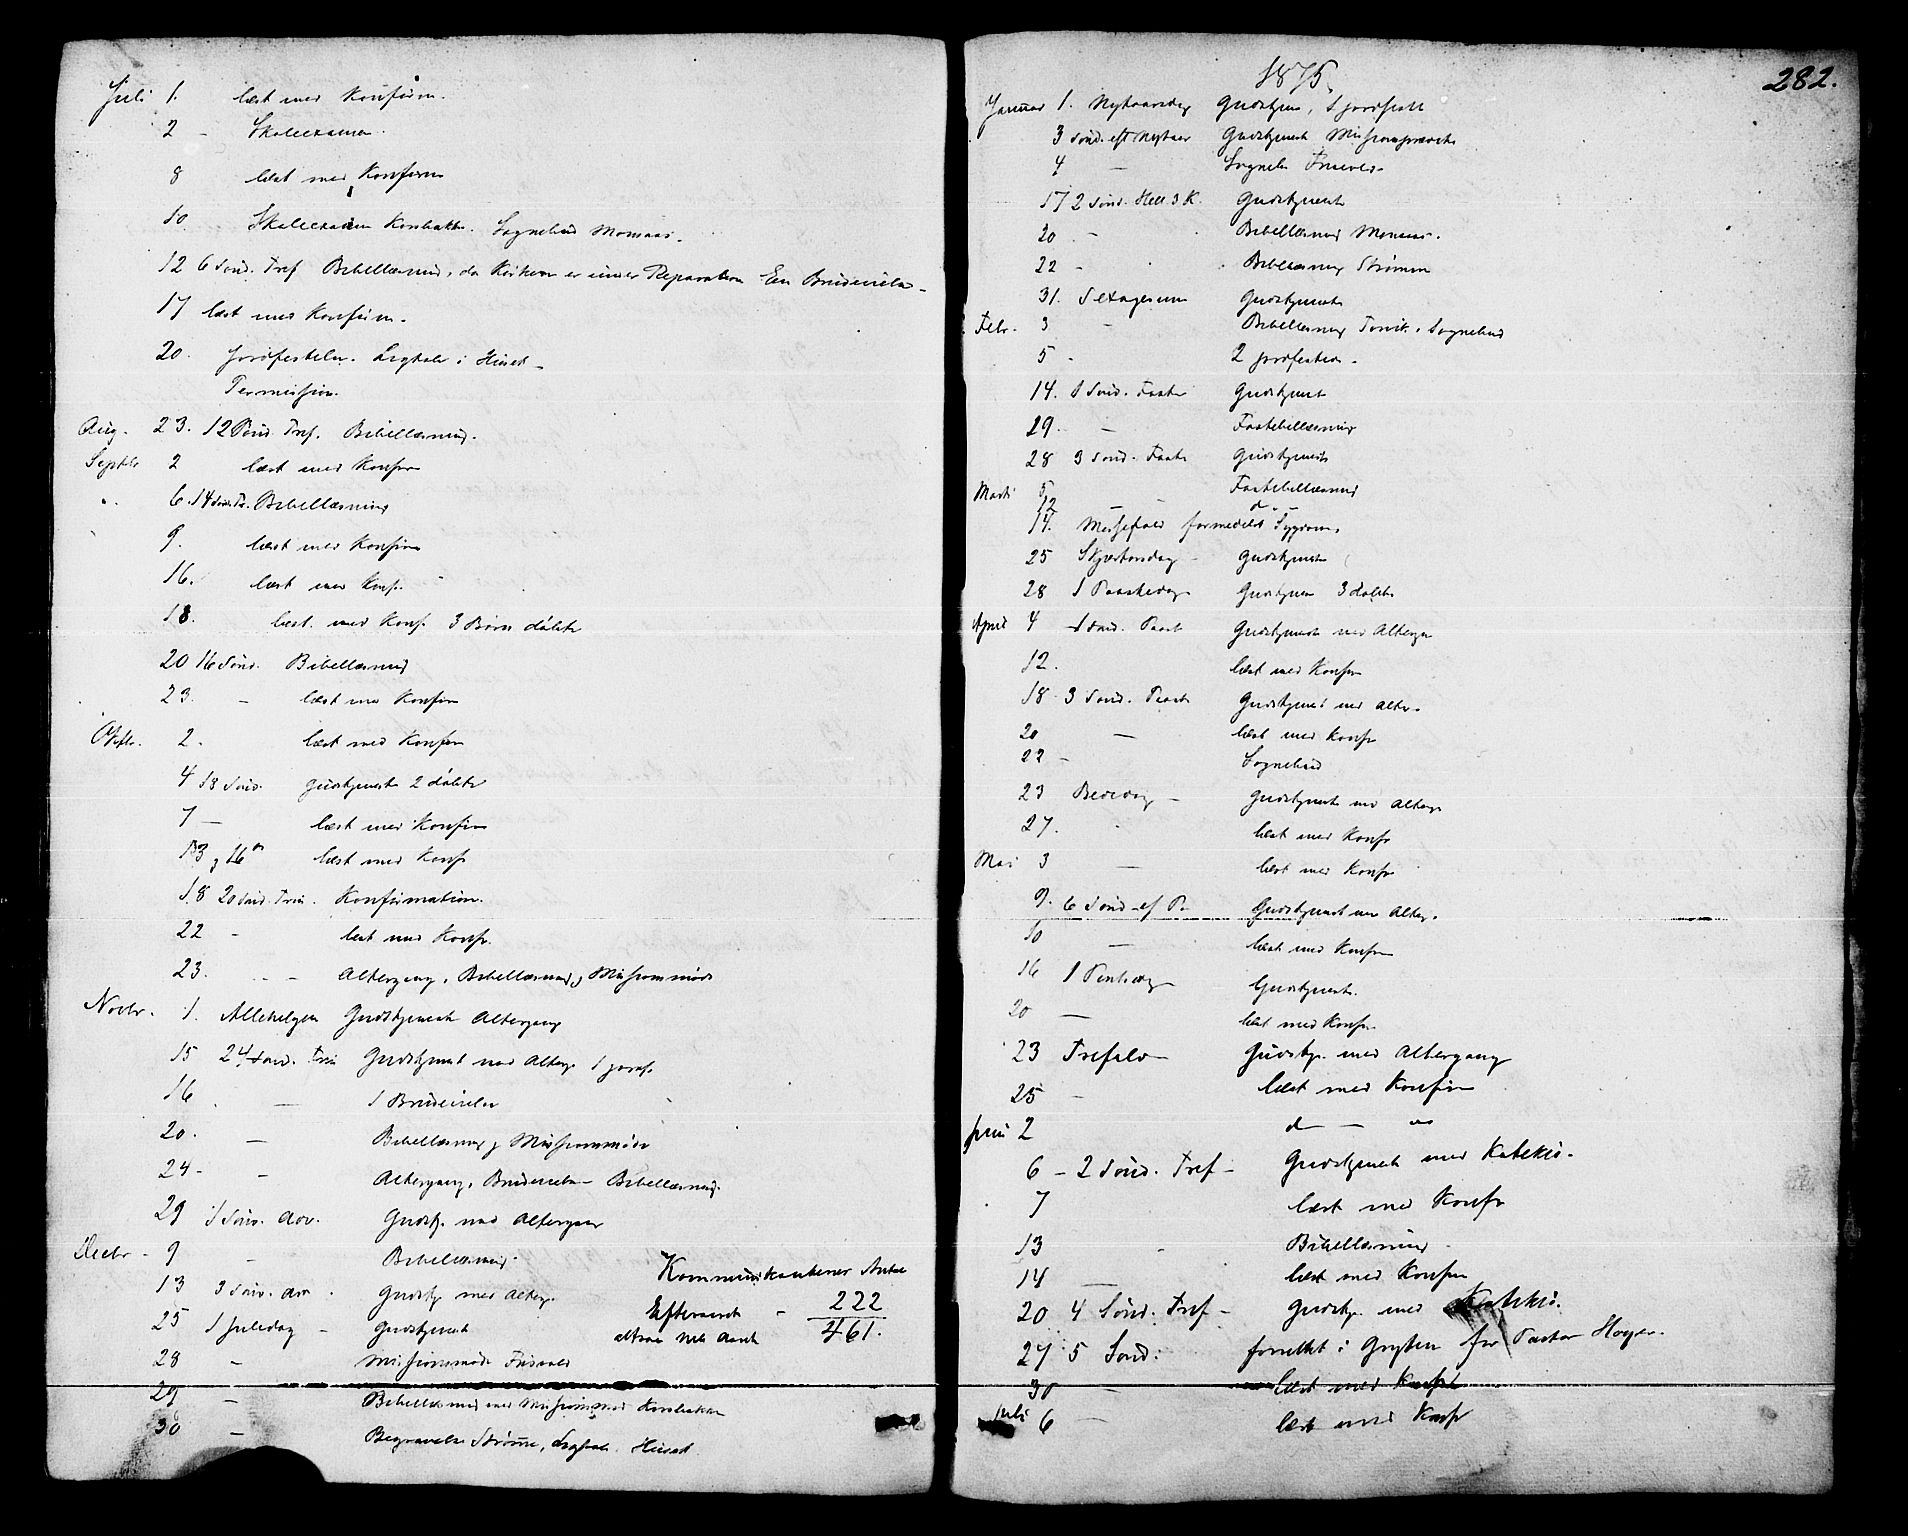 Juli 1. læst med Konfirm.
2 - Skoleexamen.
8 læst med Konfirm
10. Skoleexamen Kornbakken. Sognebud Monsaas.
12 6 Sønd. Tref Bibellæsning, da Kirken er under Reparation En Brudevielse
17 læst med Konfirm.
20. Jordfestelse. Ligtale i Huset
Permission.
Aug. 23. 12 Sønd. Tref. Bibellæsning.
Septbr 2 læst med Konfir
" 6. 14 Sønd. Tr. Bibellæsning
9. læst med Konfirm
16. læst med Konf.
18. læst med Konf. 3 Børn døbte
20 16 Sønd. Bibellæsning
23. - læst med Konfirm
Oktbr. 2. læst med Konfirm
4 18 Sønd. Gudstjeneste 2 døbte
7 - læst med Konfirm
13 og 16de læst med Konfr
18 20 Sønd. Trin. Konfirmation.
22 - læst med Konfr.
23. - - Altergang, Bibellæsning og Missionsmøde
Novbr. 1. Allehelgen Gudstjeneste Altergang
15 24 Sønd. Trin Gudstjenest med Alterg. 1 jordf.
16 - 1 Brudevielse
20. - Bibellæsning og Missionsmøde
24 - - Altergang, Brudevielse - Bibellæsning.
29 1 Sønd. Adv. Gudstj. med Altergang
Decbr - 9 - Bibellæsning.
13 3 Sønd. Adv. Gudstj. med Alterg.
25 1 Juledag - Gudstjenest
28 - Missionsmøde
29 - Bibellæsning med Missionsmøde Kornbakken
30 - Begravelse Strømme, Ligtale. Huset
Kommunikanternes Antal
Efteraaret - 222
altsaa hele Aaret 461.
282.
1875.
Januar 1. Nytaarsdag Gudstjen, 1 jordfest
3 Sønd. eft. Nytaar Gudstjeneste
4 - Sognebud
17 2 Sønd. Hell 3 K. Gudstjeneste
20 - Bibellæsning Monsaas.
22 - Bibellæsning Strømm
31. Sexagesima Gudstjeneste
Febr. 3 - Bibellæsning Sognebud
5 - 2 jordfestelser
14. 1 Sønd. Faste Gudstjenest
19. - Fastebellæsning
28 3 Sønd. Faste Gudstjeneste
Marts 5 - Fastebellæsning
12 - d - "
14. Messefald formedelst Sygdom.
25 Skjærtorsdag - Gudstjeneste
28 1 Paaskedag Gudstjen 3 døbte
April 4 1 Sønd. Paask Gudstjeneste med Alterga
12. læst med Konfr
18 3 Sønd. Paask Gudstjenest med Alter.
20 - læst med Konfr
22 - Sognebud
23 Bededag - Gudstjeneste med Alterg
27. læst med Konfr
Mai 3 - læst med Konfr
9. 6 Sønd. ef P. Gudstjenest med Alterg.
10 - læst med Konfr
16 1 Pintsedag Gudstjenest.
20 - læst med Konfr.
23 Trefold - Gudstj. med Altergang
25 - læst med Konfirm
Juni 2 d - "
6 - 2 Sønd. Tref - Gudstjeneste med Katekis.
7 læst med Konfr
13 Bibellæsning
14 - læst med Konfr
20 4 Sønd. Tref - Gudstj. med Katekis.
27 5 Sønd: forrettet i Grytten for Pastor Høyer.
30 - læst med Konfr
Juli 6 - læst med Konfr